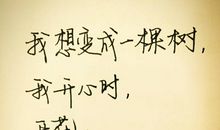 我想变成一棵树，
我开心时，
开花，